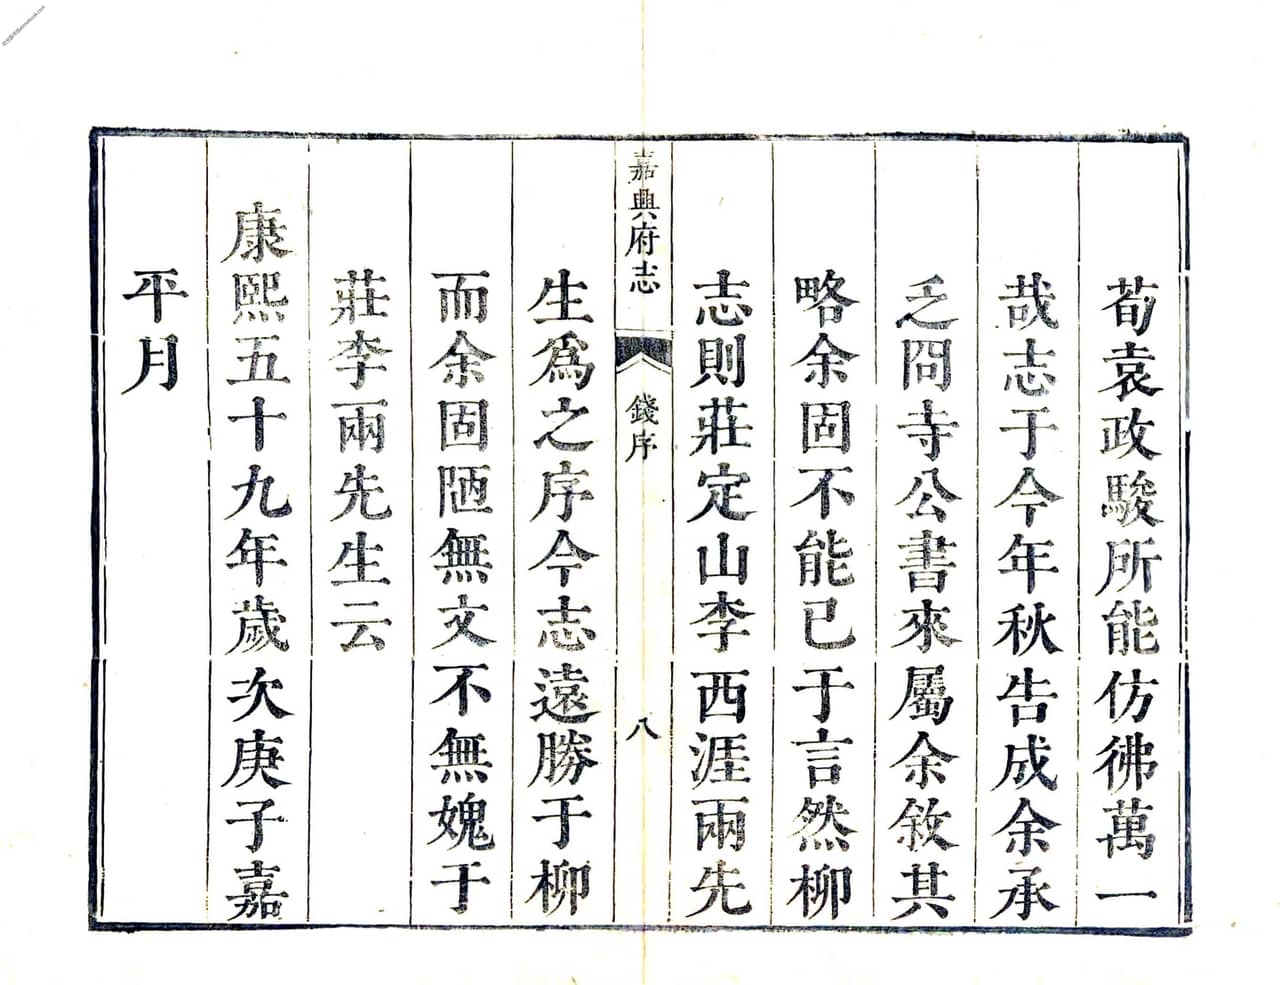 荀袁政駿所能仿彿萬一
哉志于今年秋告成余承
乏冏寺公書來屬余敘其
略余固不能已于言然柳
志則莊定山李西涯兩先
嘉興府志 錢序 八
生爲之序今志遠勝于柳
而余固陋無文不無媿于
莊李兩先生云
康熙五十九年歲次庚子嘉
平月